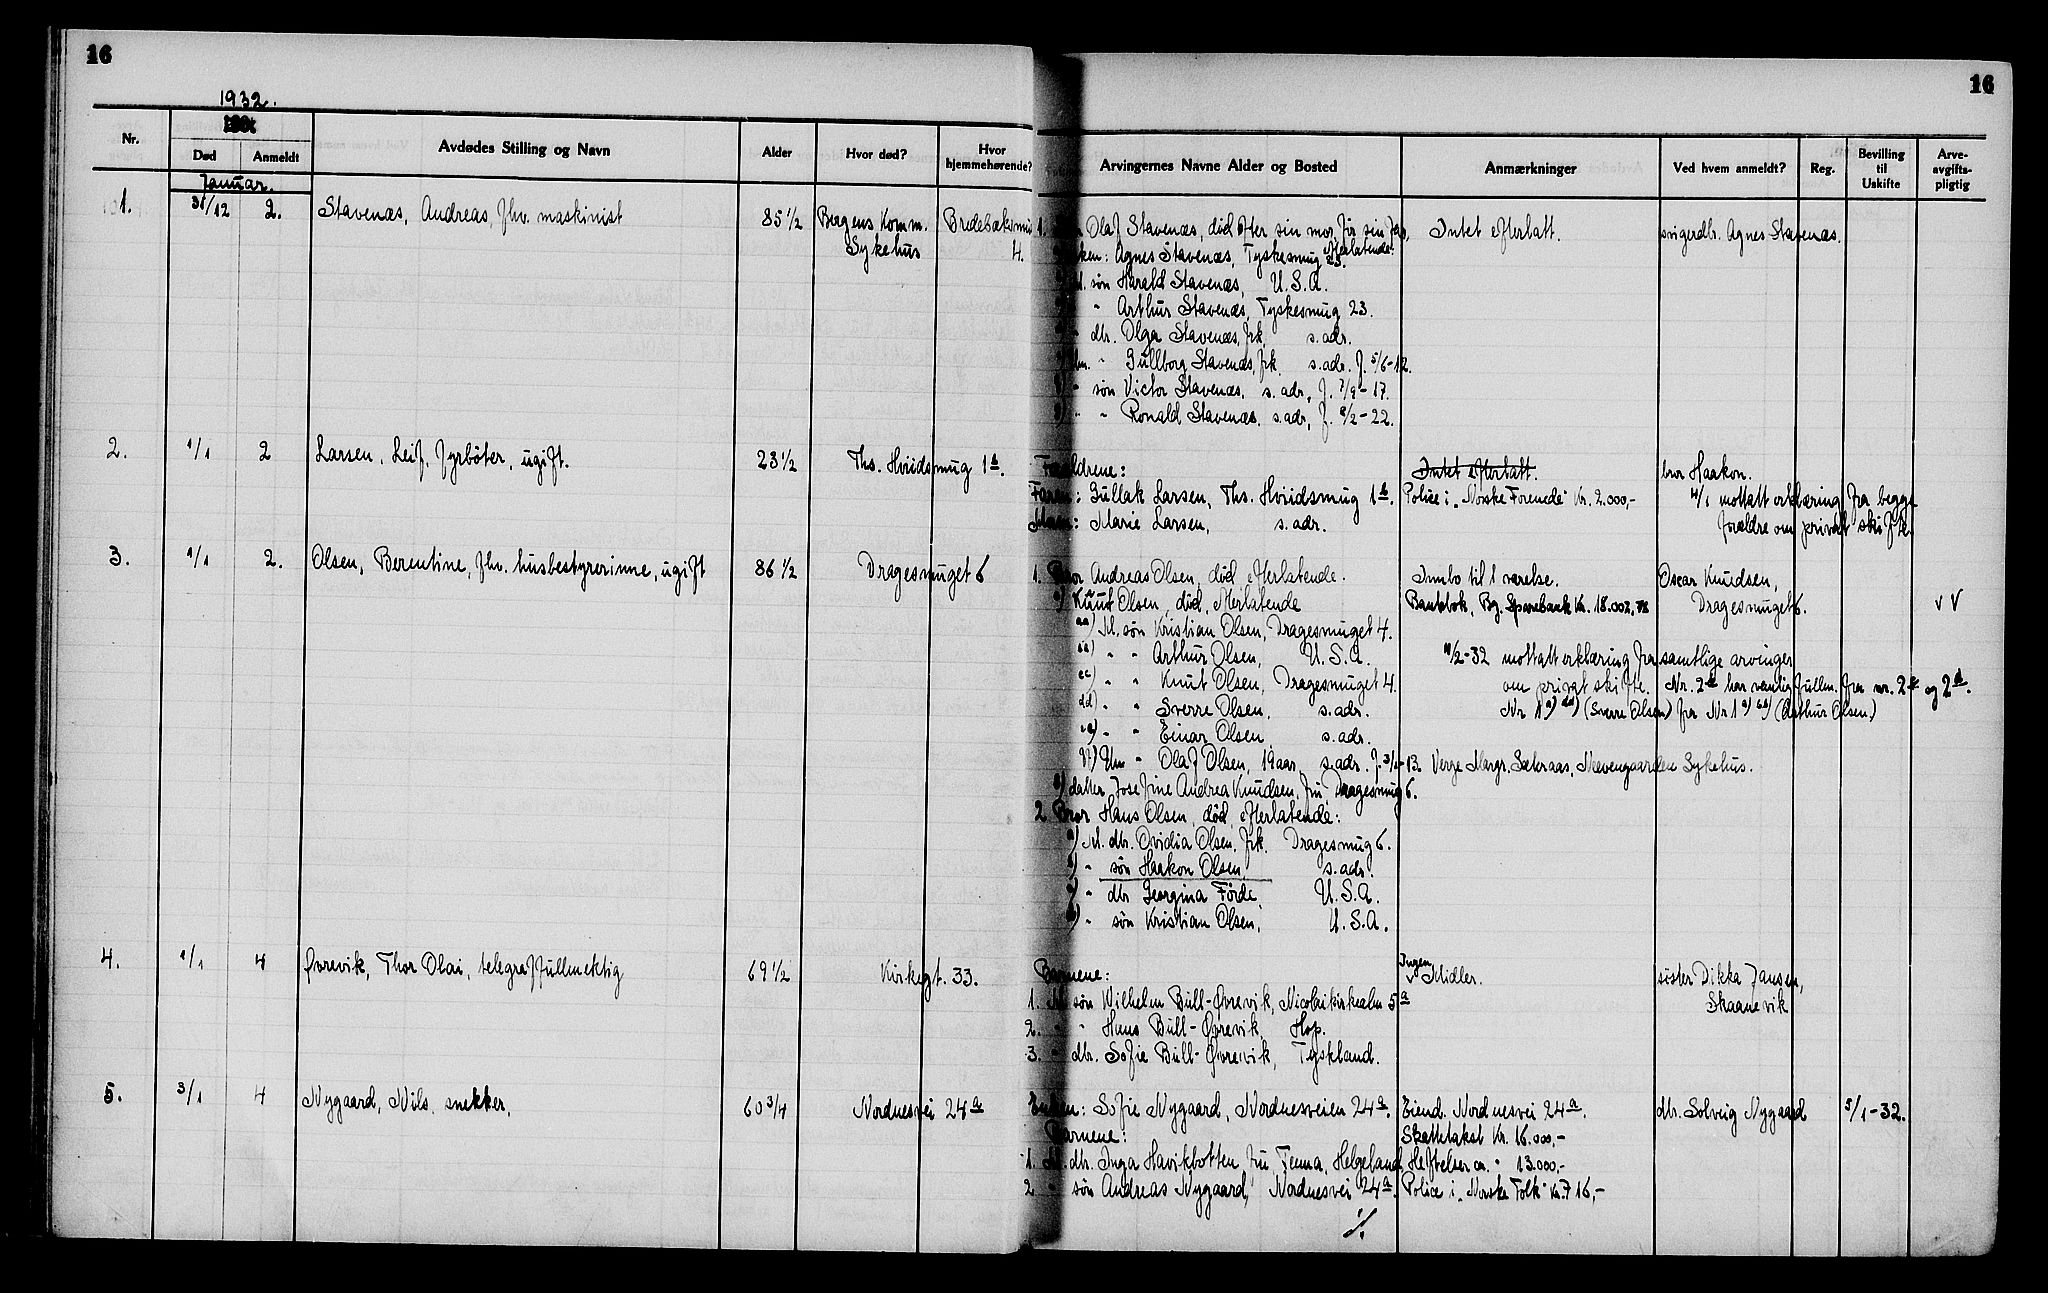 16
16
1932.
Nr.
Død
Anmeldt
Avdødes Stilling og Navn
Alder
Hvor død?
Hvor hjemmehørende?
Arvingernes Navne Alder og Bosted
Anmærkninger
Ved hvem anmeldt?
Reg.
Bevilling til Uskifte
Arve-avgifts-pligtig
Januar.
1. 31/12 2. Stavenæs, Andreas, fhv. maskinist 85 1/2 Bergens Komm. Bredebæksmug
Sykehus 4.
1. Olaf Stavenæs, død efter sin mor, før sin far, Intet efterlatt. svigerdtr. Agnes Stavenæs.
efterlatende:
Enken: Agnes Stavenæs, Tyskesmug 23.
M. søn Harald Stavenæs, U.S.A.
" Arthur Stavenæs, Tyskesmug 23.
" dtr. Olga Stavenæs, frk. s. adr.
Um. " Gullborg Stavenæs, frk. s. adr. f. 5/6-12.
" søn Victor Stavenæs, s. adr, f. 7/9-17.
" " Ronald Stavenæs, s. adr, f. 8/2-22.
2. 1/1 2 Larsen, Leif, fyrbøter, ugift. 23 1/2 Ths. Hviidsmug 1b.
Forældrene: Intet efterlatt. bror Haakon.
Faren: Gullak Larsen, Ths. Hviidsmug 1b. Police i "Norske Forenede" Kr. 2.000,- 4/1 mottatt erklæring fra begge
Moren: Marie Larsen, s. adr. forældre om privat skifte.
3. 1/1 2. Olsen, Berentine, fhv. husbestyrerinne, ugift 86 1/2 Dragesmuget 6
1. Bror Andreas Olsen, død, efterlatende. Innbo til 1 værelse. Oscar Knudsen,
a) Knut Olsen, død, efterlatende Bankbok, Bg. Sparebank Kr. 18.002, Dragesmuget 6. v v
aa) M. søn Kristian Olsen, Dragesmuget 4.
" " Arthur Olsen, U.S.A. 11/2-32 mottatt erklæring fra samtlige arvinger
cc) " " Knut Olsen, Dragesmuget 4. om privat skifte. Nr. 2 har vanlig fullm. fra nr. 2 og 2d.
dd) " " Sverre Olsen, s. adr. Nr 1a) dd) (Sverre Olsen) fra Nr 1a) bb) (Arthur Olsen)
ee) " " Einar Olsen s. adr.
ff) Um " Olaf Olsen, 19 aar, s. adr. f. 3/1-13. Verge Margr. Sæteraas, Neevengaarden Sykehus.
datter Josefine Andrea Knudsen, fru, Dragesmug 6.
2 Bror Hans Olsen, død, efterlatende:
a) M. dtr. Ovidia Olsen, frk. Dragesmug 6.
b) " søn Haakon Olsen, s. adr.
c) " dtr Georgina Førde, U.S.A.
d) " søn Kristian Olsen, U.S.A.
4. 1/1 4 Øvrevik, Thor Olai, telegraffullmektig 69 1/2 Kirkegt. 33.
Barnene: Ingen Midler. søster Dikka Jansen,
1. M. søn Wilhelm Bull-Øvrevik, Nicolaikirkealm 5a Skaanevik
2. " " Hans Bull-Øvrevik, Hop.
3. " dtr. Sofie Bull-Øvrevik, Tyskland.
5. 3/1 4 Nygaard, Nils, snekker, 60 3/4 Nordnesvei 24a
Enken: Sofie Nygaard, Nordnesveien 24a. Eiend. Nordnesvei 24a. dtr. Solveig Nygaard 5/1-32.
Barnene: Skattetakst Kr. 16.000,-
1. M. dtr. Inga Havikbotten, fru, Temna, Helgeland, Heftelser ca. " 13.000,-
2 " søn Andreas Nygaard, Nordnesvei 24a. Police i "Norske Folk" Kr. 716,-
./.